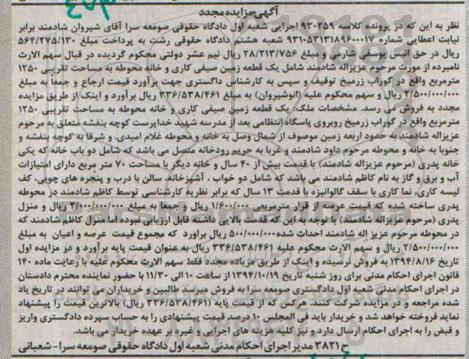 آگهی مزایده مجدد
نظر به این که در پرونده کلاسه ۹۳۰۲۵۹ اجرایی شعبه اول دادگاه حقوقی صومعه سرا آقای شیروان شادمند برابر
نیابت اعطایی شماره ۹۳۱۰۵۳۱۳۱۸۹۶۰۰۰۱۷ شعبه هشتم دادگاه حقوقی رشت به پرداخت مبلغ ۵۶۴/۲۷۵/۱۳۰
ریال در حق الیاس یوسفی شارمی و مبلغ ۲۸/۲۱۳/۷۵۶ ریال نیم عشر دولتی محکوم گردیده در قبال سهم الارث
نامبرده از مورث مرحوم عزیزاله شادمند شامل یک قطعه زمین صیفی کاری و خانه محوطه به مساحت تقریبی ۱۲۵۰
مترمربع واقع در گوراب زرمیخ توقیف و سپس به کارشناس داگستری جهت برآورد قیمت ارجاع و جمعا به مبلغ
۲/۵۰۰/۰۰۰/۰۰۰ ریال و سهم محکوم علیه (انوشیروان) به مبلغ ۳۳۶/۵۳۸/۴۶۱ ریال برآورد و اینک از طریق مزایده
مجدد به فروش می رسد. مشخصات ملک: یک قطعه زمین صیفی کاری و خانه محوطه به مساحت تقریبی ۱۲۵۰
مترمربع واقع در گوراب زرمیخ روبروی پاسگاه انتظامی بعد از مدرسه شهید خداپرست کوچه بنفشه متعلق به مرحوم
عزیزاله شادمند به حدود اربعه زمین موصوف از شمال وصل به خانه و محوطه غلام امیدی و شرقا به کوچه بنفشه و
جنوبا به خانه و محوطه مرحوم داود شادمند و غربا به حریم رودخانه متصل می باشد که شامل دو باب خانه که یکی
خانه پدری (مرحوم عزیزاله شادمند) با قدمت بیش از ۴۰ سال و خانه دیگر با مساحت ۷۰ متر مربع دارای امتیازات
آب و برق و گاز به نام کاظم شادمند می باشد که شامل دو خواب، آشپزخانه، سالن با درب و پنجره های چوبی، کف
لیسه کاری، نما کاری با سقف گالوانیزه با قدمت ۱۳ سال که برابر نظریه کارشناسی توسط کاظم شادمند در محوطه
پدری ساخته شده که قیمت عرصه از قرار مترمربعی ۱/۶۰۰/۰۰۰ ریال و جمعا به مبلغ ۲/۰۰۰/۰۰۰/۰۰۰ ریال و منزل
پدری (مرحوم عزیزاله شادمند) با توجه به این که قدمت بالایی داشته قابل ارزیابی نبوده اما منزل کاظم شادمند که
در محوطه مرحوم عزیز اله شادمند احداث شده ۵۰۰/۰۰۰/۰۰۰ ریال برآورد که مجموع قیمت عرصه و اعیان به مبلغ
۲/۵۰۰/۰۰۰/۰۰۰ ریال و سهم الارث محکوم علیه ۳۳۶/۵۳۸/۴۶۱ ریال به عنوان قیمت پایه برآورد و در مزایده اول
تاریخ ۱۳۹۴/۸/۱۶ به فروش نرسیده و اینک از طریق مزایده مجدد فقط سهم الارث محکوم علیه با رعایت ماده ۱۴۰
قانون اجرای احکام مدنی برای روز شنبه تاریخ ۱۳۹۴/۱۰/۱۹ از ساعت ۱۰ الی ۱۱/۳۰ با حضور نماینده محترم دادستان
در اجرای احکام مدنی شعبه اول دادگستری صومعه سرا به فروش میرسد طالبین و خریداران می توانند در تاریخ یاد
شده مراجعه و در مزایده شرکت کنند. هرکس که از قیمت پایه (۳۳۶/۵۳۸/۴۶۱ ریال) بالاترین قیمت را پیشنهاد
نماید فروخته خواهد شد و خریدار باید فی المجلس ۱۰ درصد قیمت پیشنهادی را به حساب سپرده دادگستری واریز
و قبض را به اجرای احکام ارسال دارد و نیز کلیه هزینه های اجرایی و غیره بر عهده خریدار می باشد.
ح ۳۸۲۱ مدیر اجرای احکام مدنی شعبه اول دادگاه حقوقی صومعه سرا - شعبانی